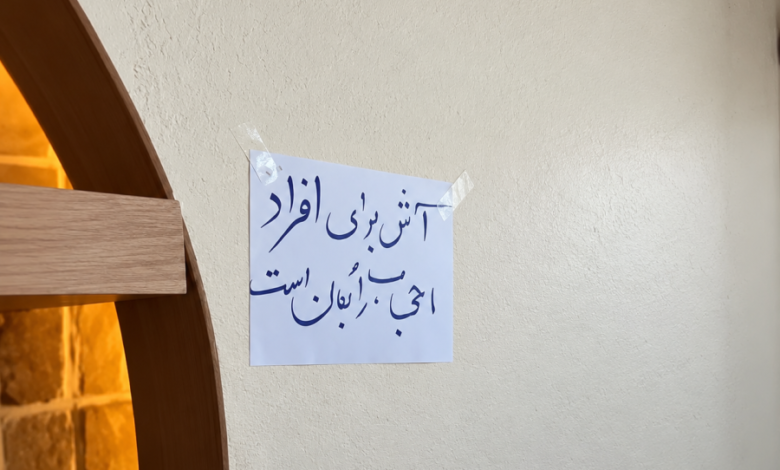 آش برای افراد
رایگان است